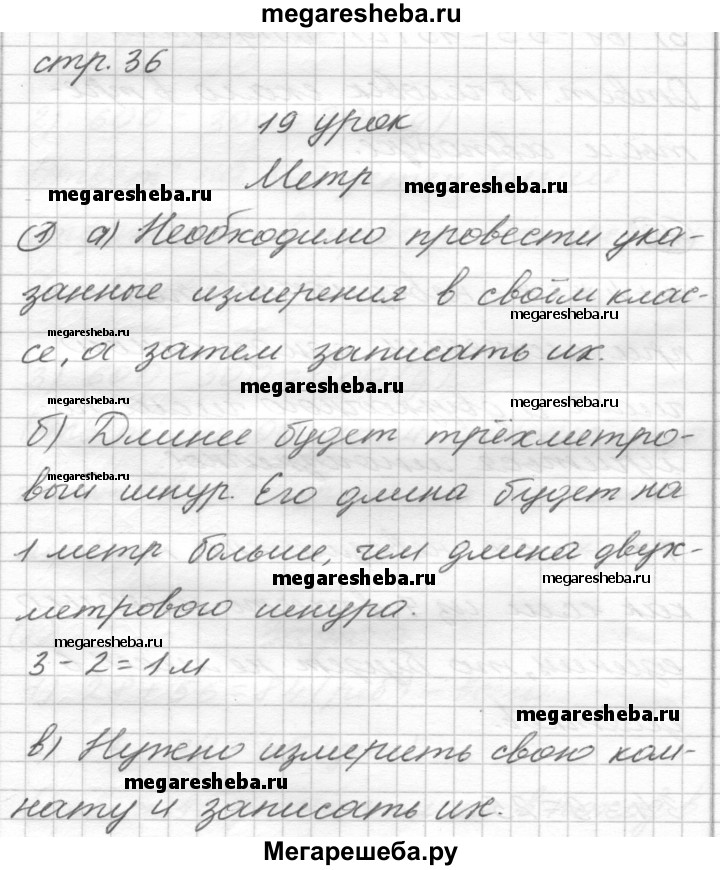 megaresheba.ru
стр. 36
19 урок
Метр
megaresheba.ru
megaresheba.ru
1 а) Необходимо провести ука-
занные измерения в своём клас-
megaresheba.ru
megaresheba.ru
се, а затем записать их.
megaresheba.ru
megaresheba.ru
б) Длинее будет трёхметро-
megaresheba.ru
вый шнур. Его длина будет на
1 метр больше, чем длина двух-
megaresheba.ru
megaresheba.ru
метрового шнура.
megaresheba.ru
3 - 2 = 1 м
megaresheba.ru
в) Нужно измерить свою ком-
megaresheba.ru
нату и записать их.
Мегарешеба.ру